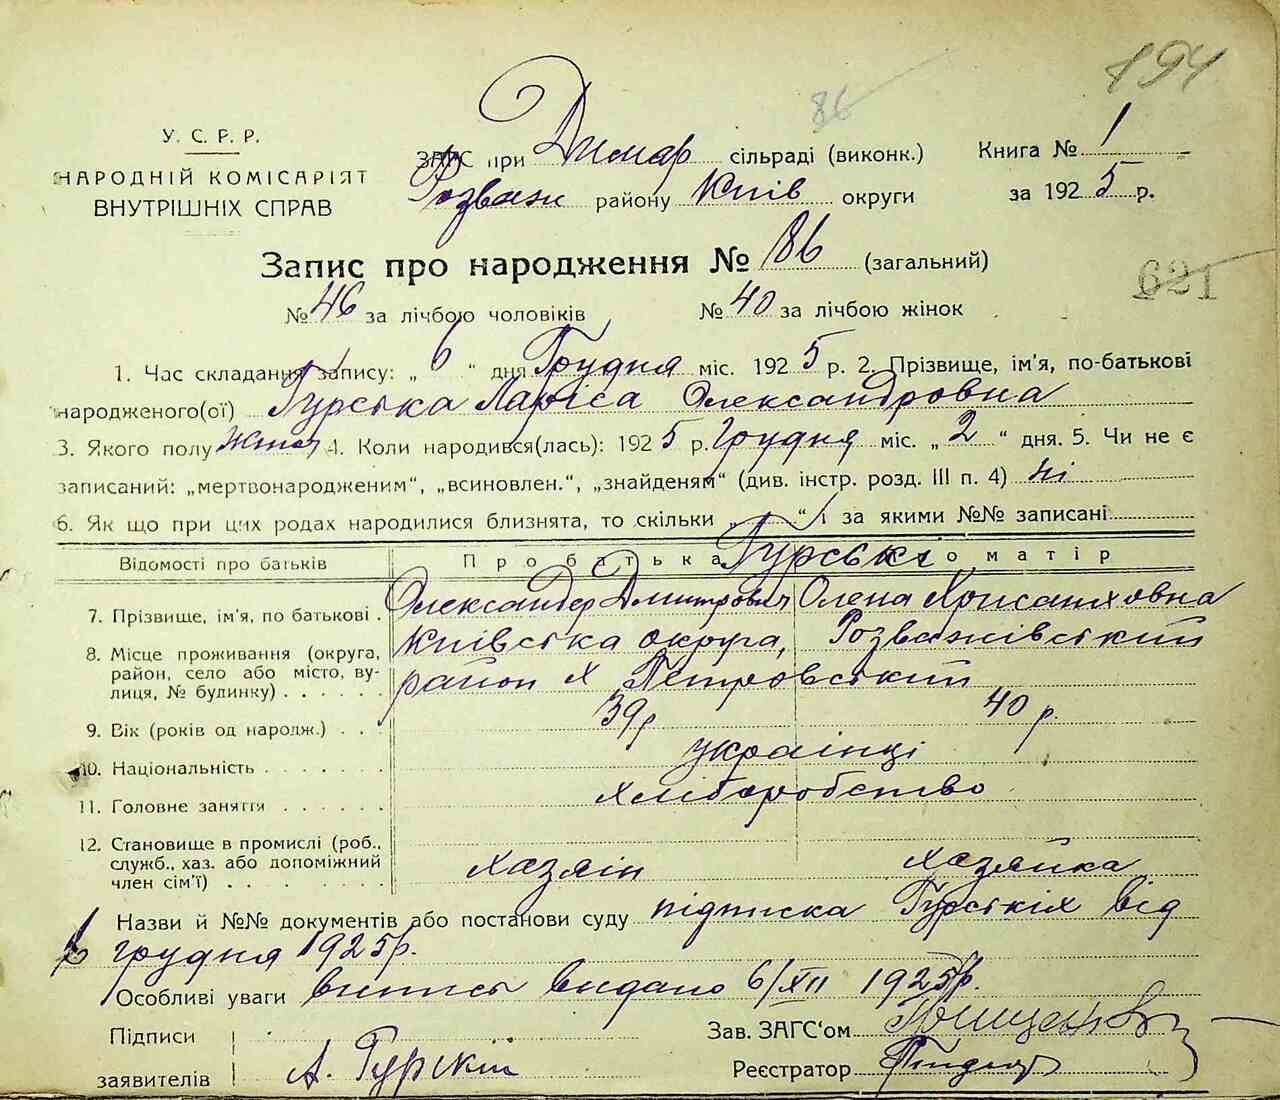 194
86
У. С. Р. Р.
НАРОДНІЙ КОМІСАРІЯТ
ВНУТРІШНІХ СПРАВ
ЗАГС при Димар сільраді (виконк.) Книга № 1
Розваж району Київ округи за 1925 р.
Запис про народження № 86 (загальний)
621
№ 46 за лічбою чоловіків № 40 за лічбою жінок
1. Час складання запису: „ 6 “ дня Грудня міс. 1925 р. 2. Прізвище, ім'я, по-батькові
народженого(ої) Гурська Ларіса Олександровна
3. Якого полу жіноч 4. Коли народився(лась): 1925 р. Грудня міс. „ 2 “ дня. 5. Чи не є
записаний: „мертвонародженим“, „всиновлен.“, „знайденям“ (див. інстр. розд. III п. 4) ні
6. Як що при цих родах народилися близнята, то скільки „ “ за якими №№ записані
Відомості про батьків Про батька Гурські Про матір
7. Прізвище, ім'я, по батькові . Олександер Дмитрович Олена Хрисанховна
8. Місце проживання (округа, Київська округа, Розважівський
район, село або місто, ву-
лиця, № будинку) . . . . . район х Петровський
9. Вік (років од народж.) . . . 39 р 40 р.
10. Національність . . . . . . . українці
11. Головне заняття . . . . . . хліборобство
12. Становище в промислі (роб.,
служб., хаз. або допоміжний хазяін хазяйка
член сім'ї) . . . . . . . . .
Назви й №№ документів або постанови суду підписка Гурських від
6 грудня 1925 р.
Особливі уваги випись видано 6/XII 1925 р.
Підписи Зав. ЗАГС'ом
заявителів А. Гурскій Реєстратор